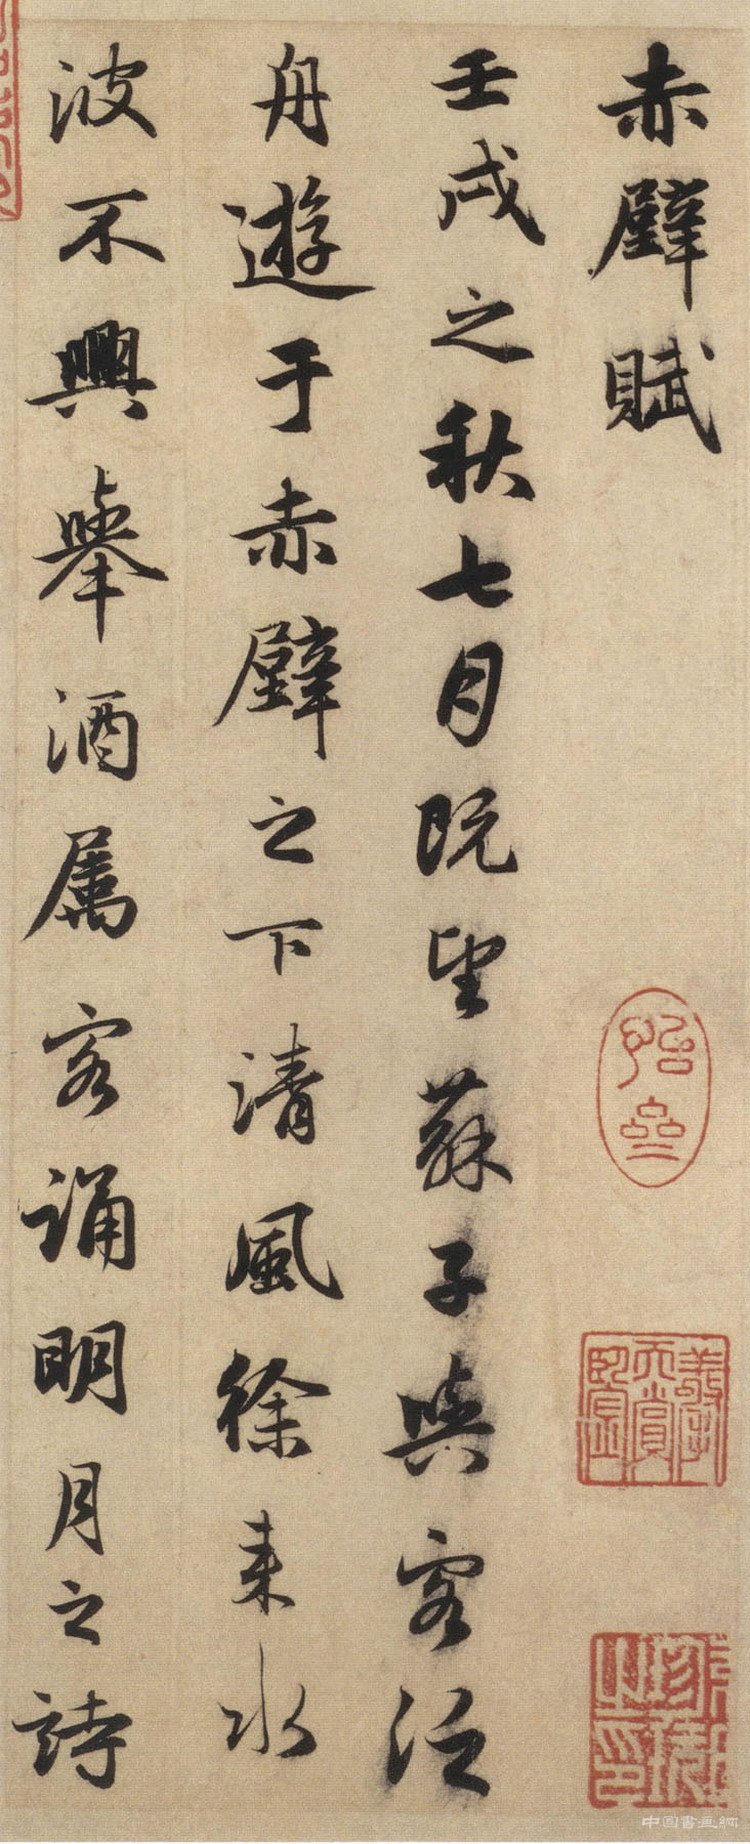 赤壁賦
壬戌之秋七月既望蘇子與客泛
舟遊于赤壁之下清風徐来水
波不興舉酒属客誦明月之詩
中国書画網